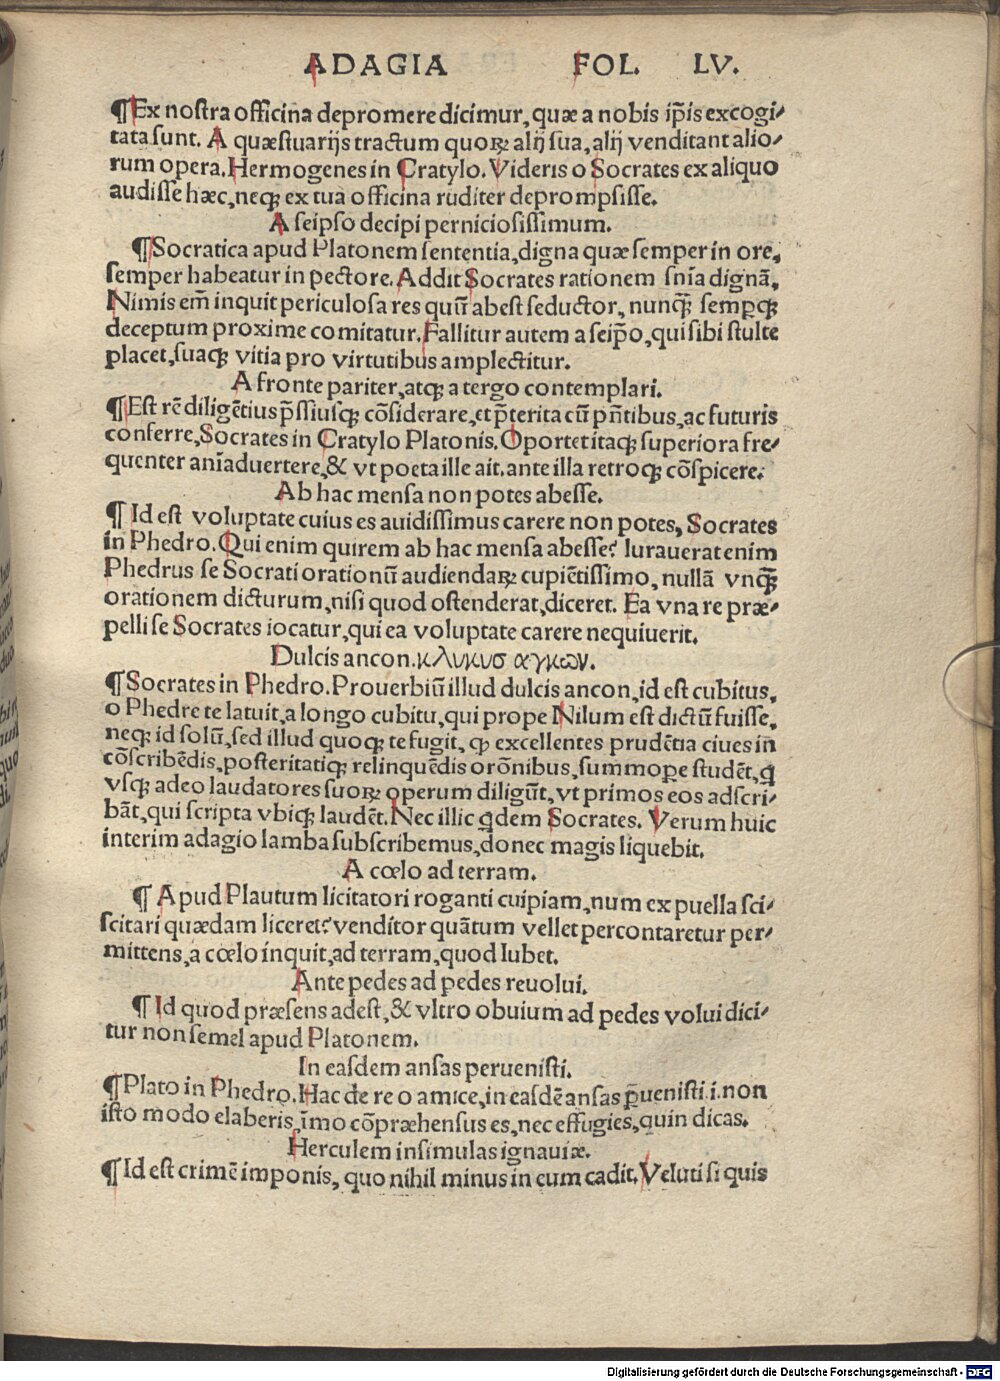 ADAGIA FOL. LV.
¶Ex nostra officina depromere dicimur, quæ a nobis ip̄is excogi/
tata sunt. A quæstuarijs tractum quoꝝ alij sua, alij venditant alio/
rum opera. Hermogenes in Cratylo. Videris o Socrates ex aliquo
audisse hæc, neqꝫ ex tua officina ruditer deprompsisse.
A seipso decipi perniciosissimum.
¶Socratica apud Platonem sententia, digna quæ semper in ore,
semper habeatur in pectore. Addit Socrates rationem snīa dignā,
Nimis em̄ inquit periculosa res quū abest seductor, nunq̄ꝫ semꝑqꝫ
deceptum proxime comitatur. Fallitur autem a seip̄o, qui sibi stulte
placet, suaqꝫ vitia pro virtutibus amplectitur.
A fronte pariter, atqꝫ a tergo contemplari.
¶Est rē diligētius p̄ssiusqꝫ cōsiderare, et p̄terita cū pn̄tibus, ac futuris
conferre, Socrates in Cratylo Platonis. Oportet itaqꝫ superiora fre/
quenter anīaduertere, & vt poeta ille ait. ante illa retroqꝫ cōspicere.
Ab hac mensa non potes abesse.
¶Id est voluptate cuius es auidissimus carere non potes, Socrates
in Phedro. Qui enim quirem ab hac mensa abesse? Iurauerat enim
Phedrus se Socrati orationū audiendaꝝ cupiētissimo, nullā vnq̄ꝫ
orationem dicturum, nisi quod ostenderat, diceret. Ea vna re præ/
pelli se Socrates iocatur, qui ea voluptate carere nequiuerit.
Dulcis ancon. κλυκυσ αγκων.
¶Socrates in Phedro. Prouerbiū illud dulcis ancon, id est cubitus,
o Phedre te latuit, a longo cubitu, qui prope Nilum est dictū fuisse,
neqꝫ id solū, sed illud quoqꝫ te fugit, ꝙ excellentes prudētia ciues in
cōscribēdis, posteritatiqꝫ relinquēdis orōnibus, summoꝑe studēt, q̄
vsqꝫ adeo laudatores suoꝝ operum diligūt, vt primos eos adscri/
bāt, qui scripta vbiqꝫ laudēt. Nec illic q̄dem Socrates. Verum huic
interim adagio lamba subscribemus, donec magis liquebit.
A cœlo ad terram.
¶Apud Plautum licitatori roganti cuipiam, num ex puella sci/
scitari quædam liceret? venditor quātum vellet percontaretur per/
mittens, a cœlo inquit, ad terram, quod lubet.
Ante pedes ad pedes reuolui.
¶Id quod præsens adest, & vltro obuium ad pedes volui dici/
tur non semel apud Platonem.
In easdem ansas peruenisti.
¶Plato in Phedro. Hac de re o amice, in easdē ansas ꝑuenisti .i. non
isto modo elaberis, īmo cōpræhensus es, nec effugies, quin dicas.
Herculem insimulas ignauiæ.
¶Id est crimē imponis, quo nihil minus in eum cadit. Veluti si quis
Digitalisierung gefördert durch die Deutsche Forschungsgemeinschaft - DFG